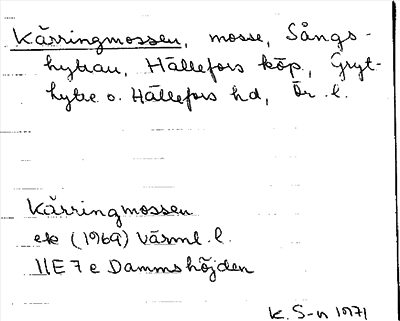 Kärringmossen, mosse, Sångs-
hyttan, Hällefors köp, Gryt-
hytte o. Hällefors hd, Ör. l.
Kärringmossen
ek (1969) Värml. l.
11E 7 e Dammshöjden
K. S-n 1971